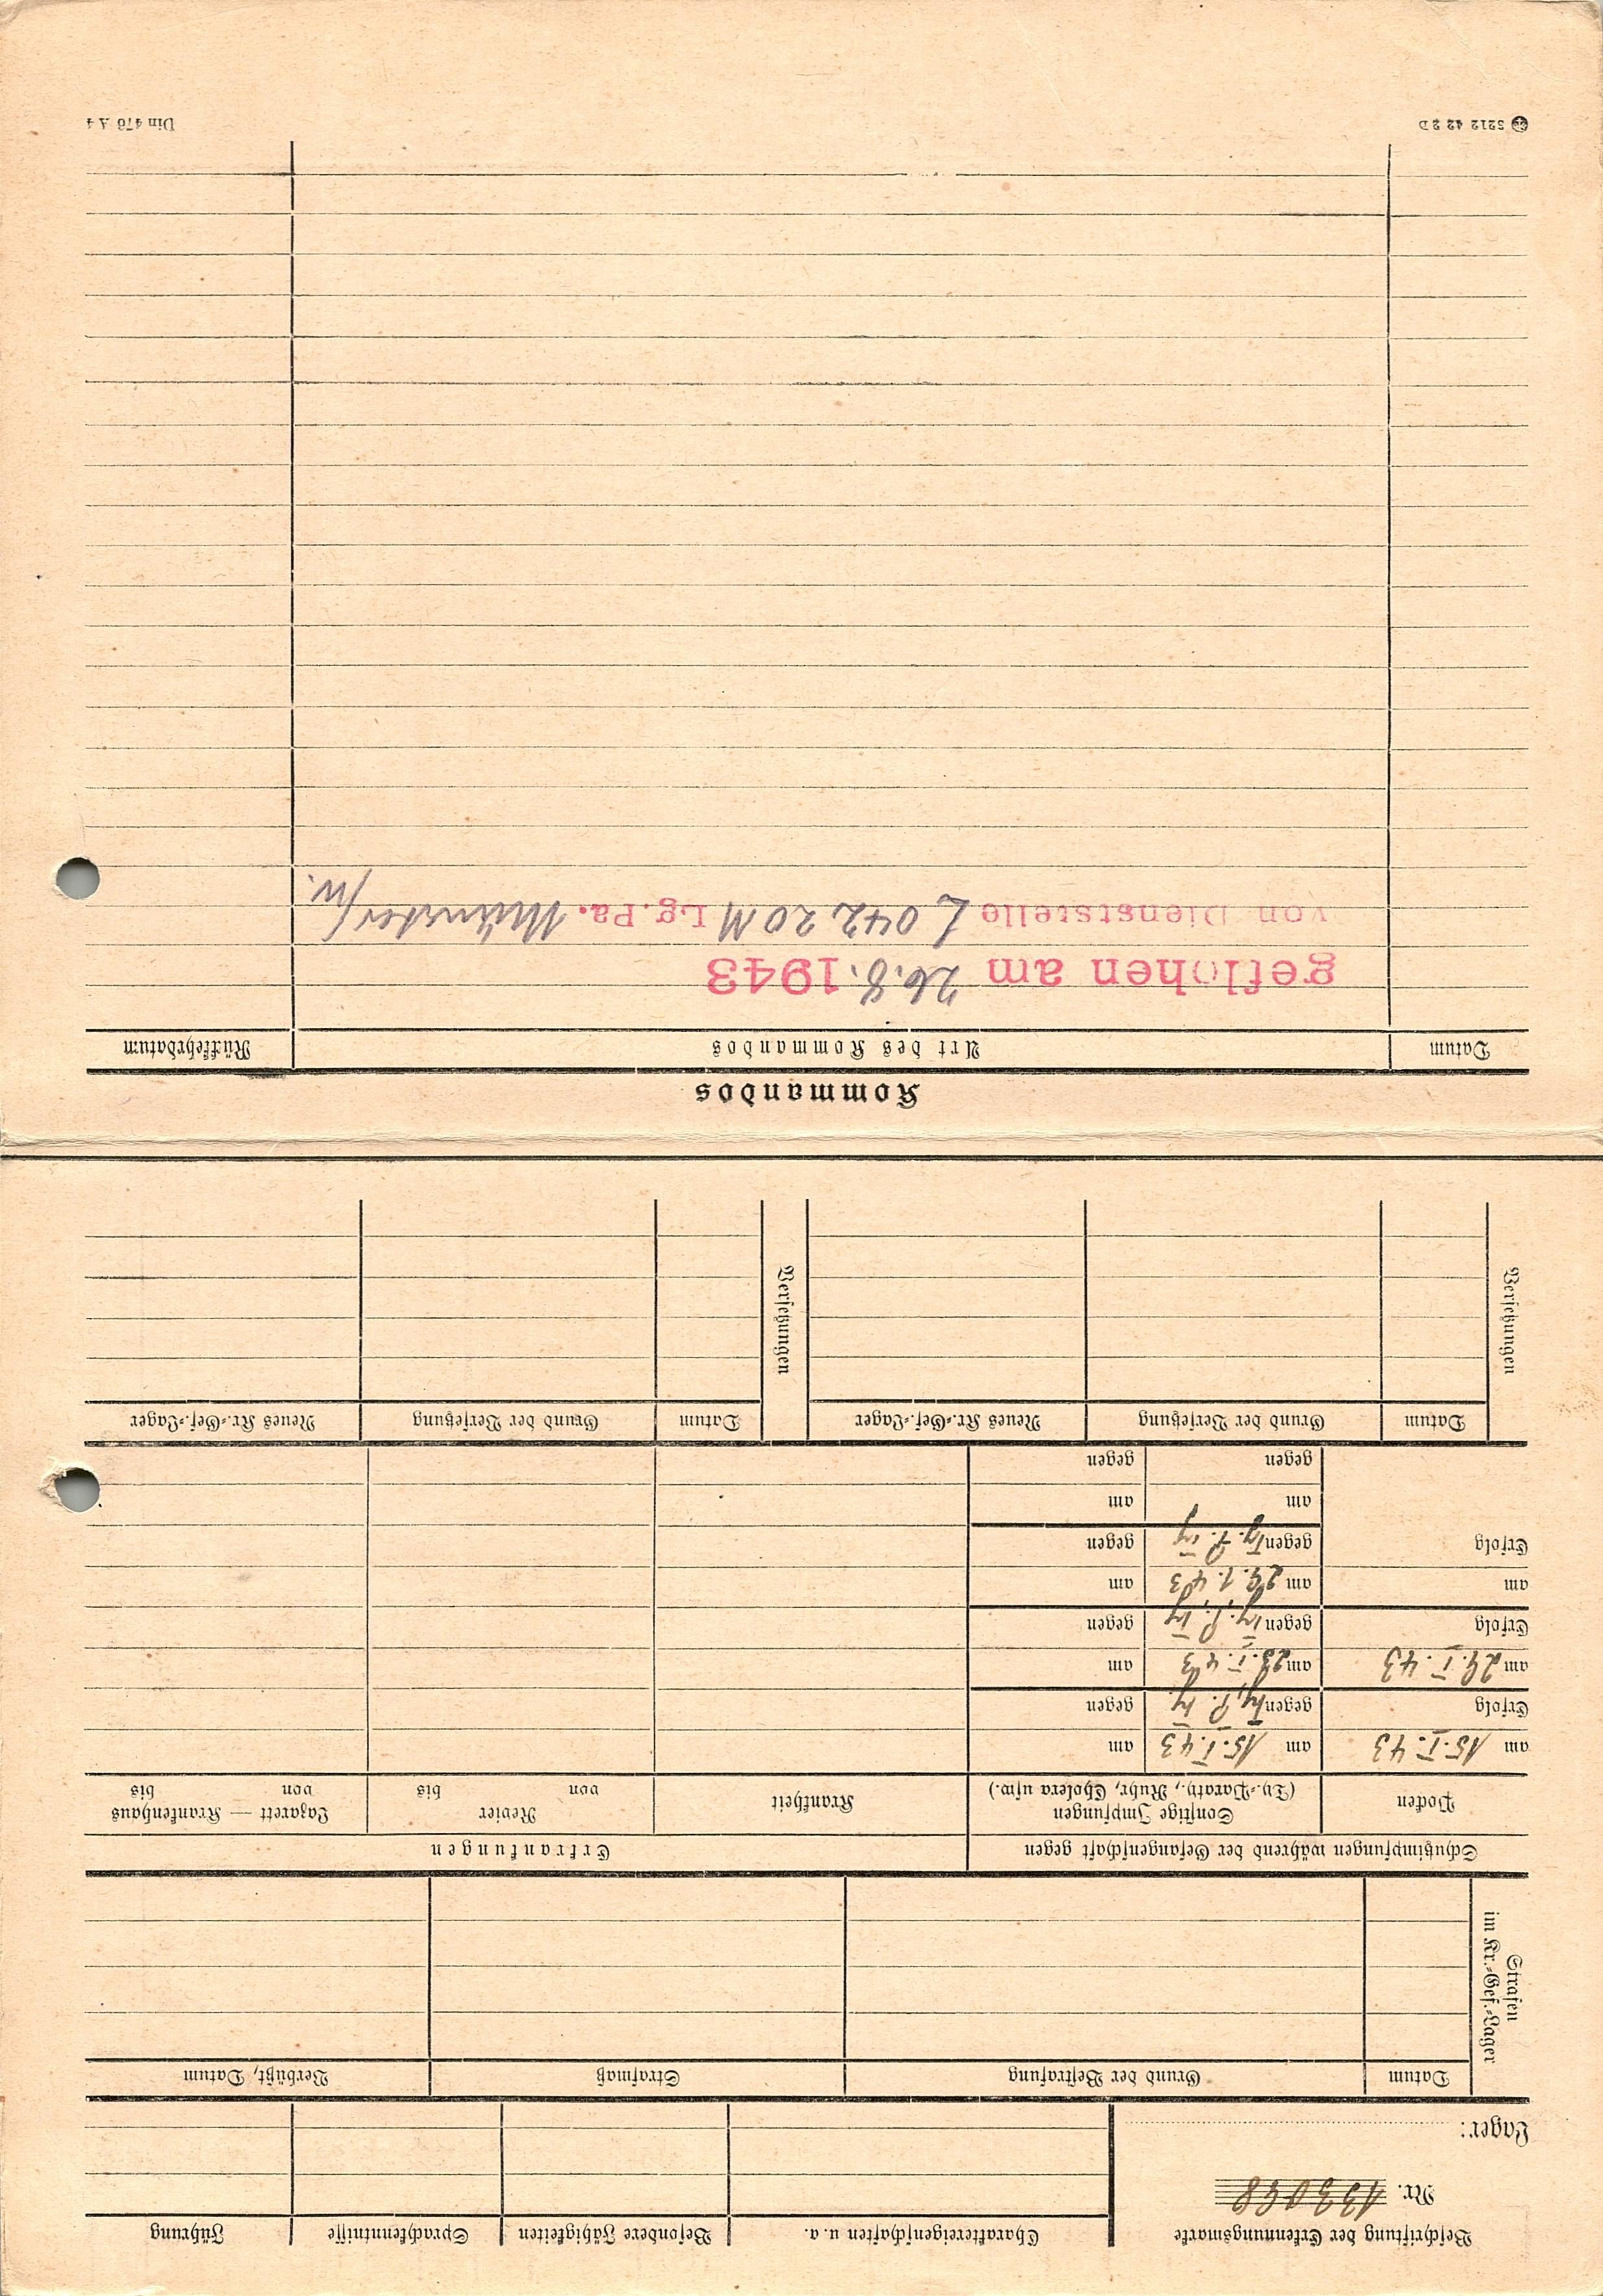 Beschriftung der Erkennungsmarke
Nr. 133098
Lager:
Charaktereigenschaften u. a.
Besondere Fähigkeiten
Sprachkenntnisse
Führung
Strafen
im Kr.-Gef.-Lager
Datum
Grund der Bestrafung
Strafmaß
Verbüßt, Datum
Schutzimpfungen während der Gefangenschaft gegen
Erkrankungen
Pocken
Sonstige Impfungen
(Ty.-Parath., Ruhr, Cholera usw.)
Krankheit
Revier
von bis
Lazarett — Krankenhaus
von bis
am 15.I.43 am 15.I.43 am
Erfolg gegen Ty. P. Ty gegen
am 29.I.43 am 23.I.43 am
Erfolg gegen Ty. P. Ty gegen
am am 29.1.43 am
Erfolg gegen Ty. P. Ty gegen
am am
gegen gegen
Versetzungen
Datum
Grund der Versetzung
Neues Kr.-Gef.-Lager
Versetzungen
Datum
Grund der Versetzung
Neues Kr.-Gef.-Lager
Kommandos
Datum
Art des Kommandos
Rückkehrdatum
geflohen am 26.8.1943
von Dienststelle L 04220 M Lg.Pa. Münster/W.
5212 42 2 D
Din 476 A 4